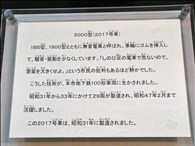 2000型(2017号車)
1800型、1900型とともに無音電車と呼ばれ、車輪にゴムを挿入し
て、騒音・振動を少なくしています。「しの足の電車で危ないので、
警笛を大きくせよ。」という市民の批判もあるほど静かでした。
こうした技術が、本市地下鉄100形車両に生かされました。
昭和31年から33年にかけて29両が製造され、昭和47年2月まで
活躍しました。
この2017号車は、昭和31年に製造されました。